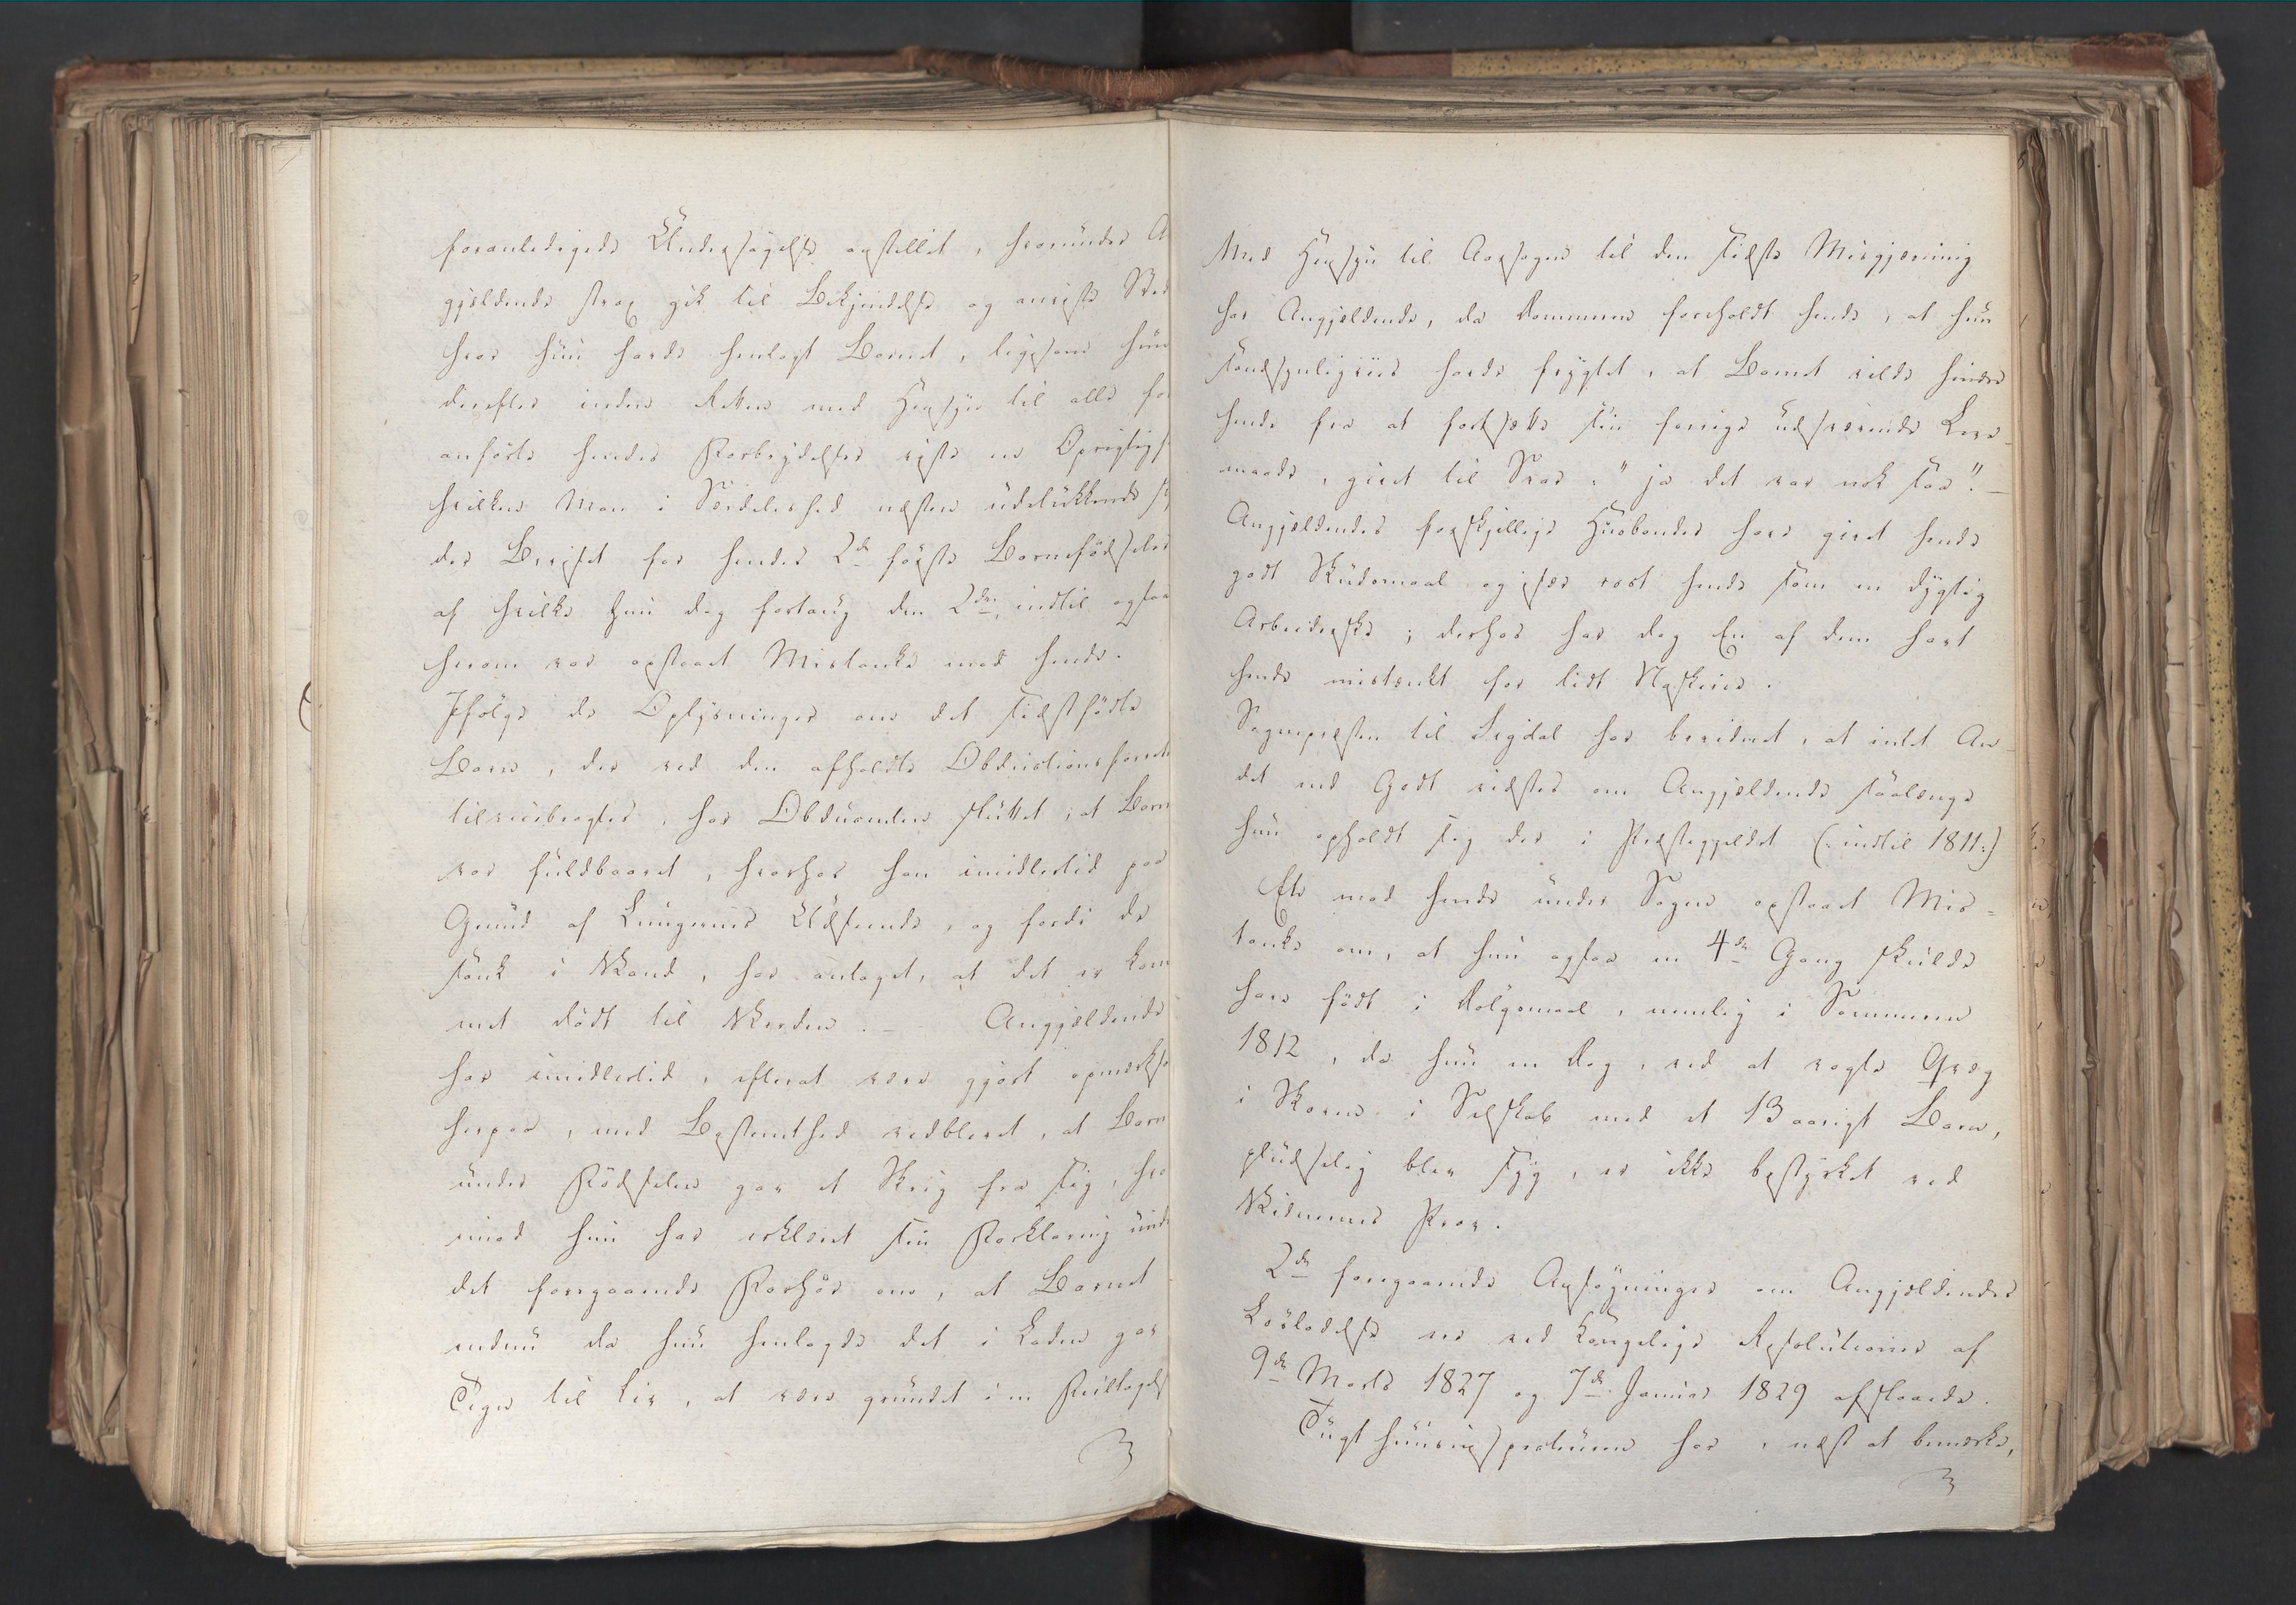 foranledigede Undersøgelse anstillet, hvorunder A
gjeldende strax gik til Bekjendelse og anviste Sted
hvor hun havde henlagt Barnet, ligesom hun
derefter inden Retten med Hensyn til alle fo
anførte hendes Forbrydelser viste en Oprigtigh
hvilken Man i Særdeleshed næsten udelukkende sk
der Beviset for hendes 2de første Barnefødseler
af hvilke hun dog fortaug den 2den, indtil ogsaa
herom var opstaaet Mistanke mod hende.
Ifølge de Oplysninger om det sidstfødte
Barn, der ved den afholdte Obductionsforretn
tilveiebragtes, har Obducenten sluttet, at Barn
var fuldbaaret, hvorhos han imidlertid paa
Grund af Lungernes Udseende, og fordi de
sank i Vand, har antaget, at det er kom
met dødt til Verden. — Angjældende
har imidlertid, efterat være gjort opmærkso
herpaa, med Bestemthed vedblevet, at Barn
under Fødselen gav et Skrig fra sig, hvo
imod hun har erklæret sin Forklaring und
det foregaaende Forhør om, at Barnet
endnu da hun henlagde det i Laden gav
Tegn til Liv, at være grundet i en Feiltagels
Med Hensyn til Aarsagen til den sidste Misgjerning
har Angjældende, da Dommeren foreholdt hende, at hun
sandsynligviis havde frygtet, at Barnet vilde hindre
hende fra at fortsætte sin forrige udsvævende Leve-
maade, givet til Svar: "ja det var nok saa". —
Angjældendes forskjellige Huusbonder have givet hende
godt Skudsmaal og især rost hende som en dygtig
Arbeiderske; derhos har dog En af dem havt
hende mistænkt for lidt Naskerie.
Sognepræsten til Sigdal har bevidnet, at intet An-
det end Godt vidstes om Angjældende saalænge
hun opholdt sig der i Præstegjeldet (: indtil 1811:)
En mod hende under Sagen opstaaet Mis-
tanke om, at hun ogsaa en 4de Gang skulde
have født i Dølgsmaal, nemlig i Sommeren
1812, da hun en Dag, ved at vogte Qvæg
i Skoven i Selskab med et 13 aarigt Barn,
pludselig blev syg, er ikke bestyrket ved
Vidnernes Prov.
2de foregaaende Ansøgninger om Angjældendes
Løsladelse ere ved Kongelige Resolutioner af
9de Marts 1827 og 7de Januar 1829 afslaaede.
Tugthuusinspecteuren har, næst at bemærke,